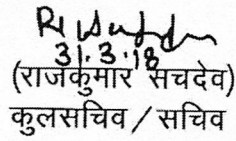 31.3.18
(राजकुमार सचदेव)
कुलसचिव / सचिव